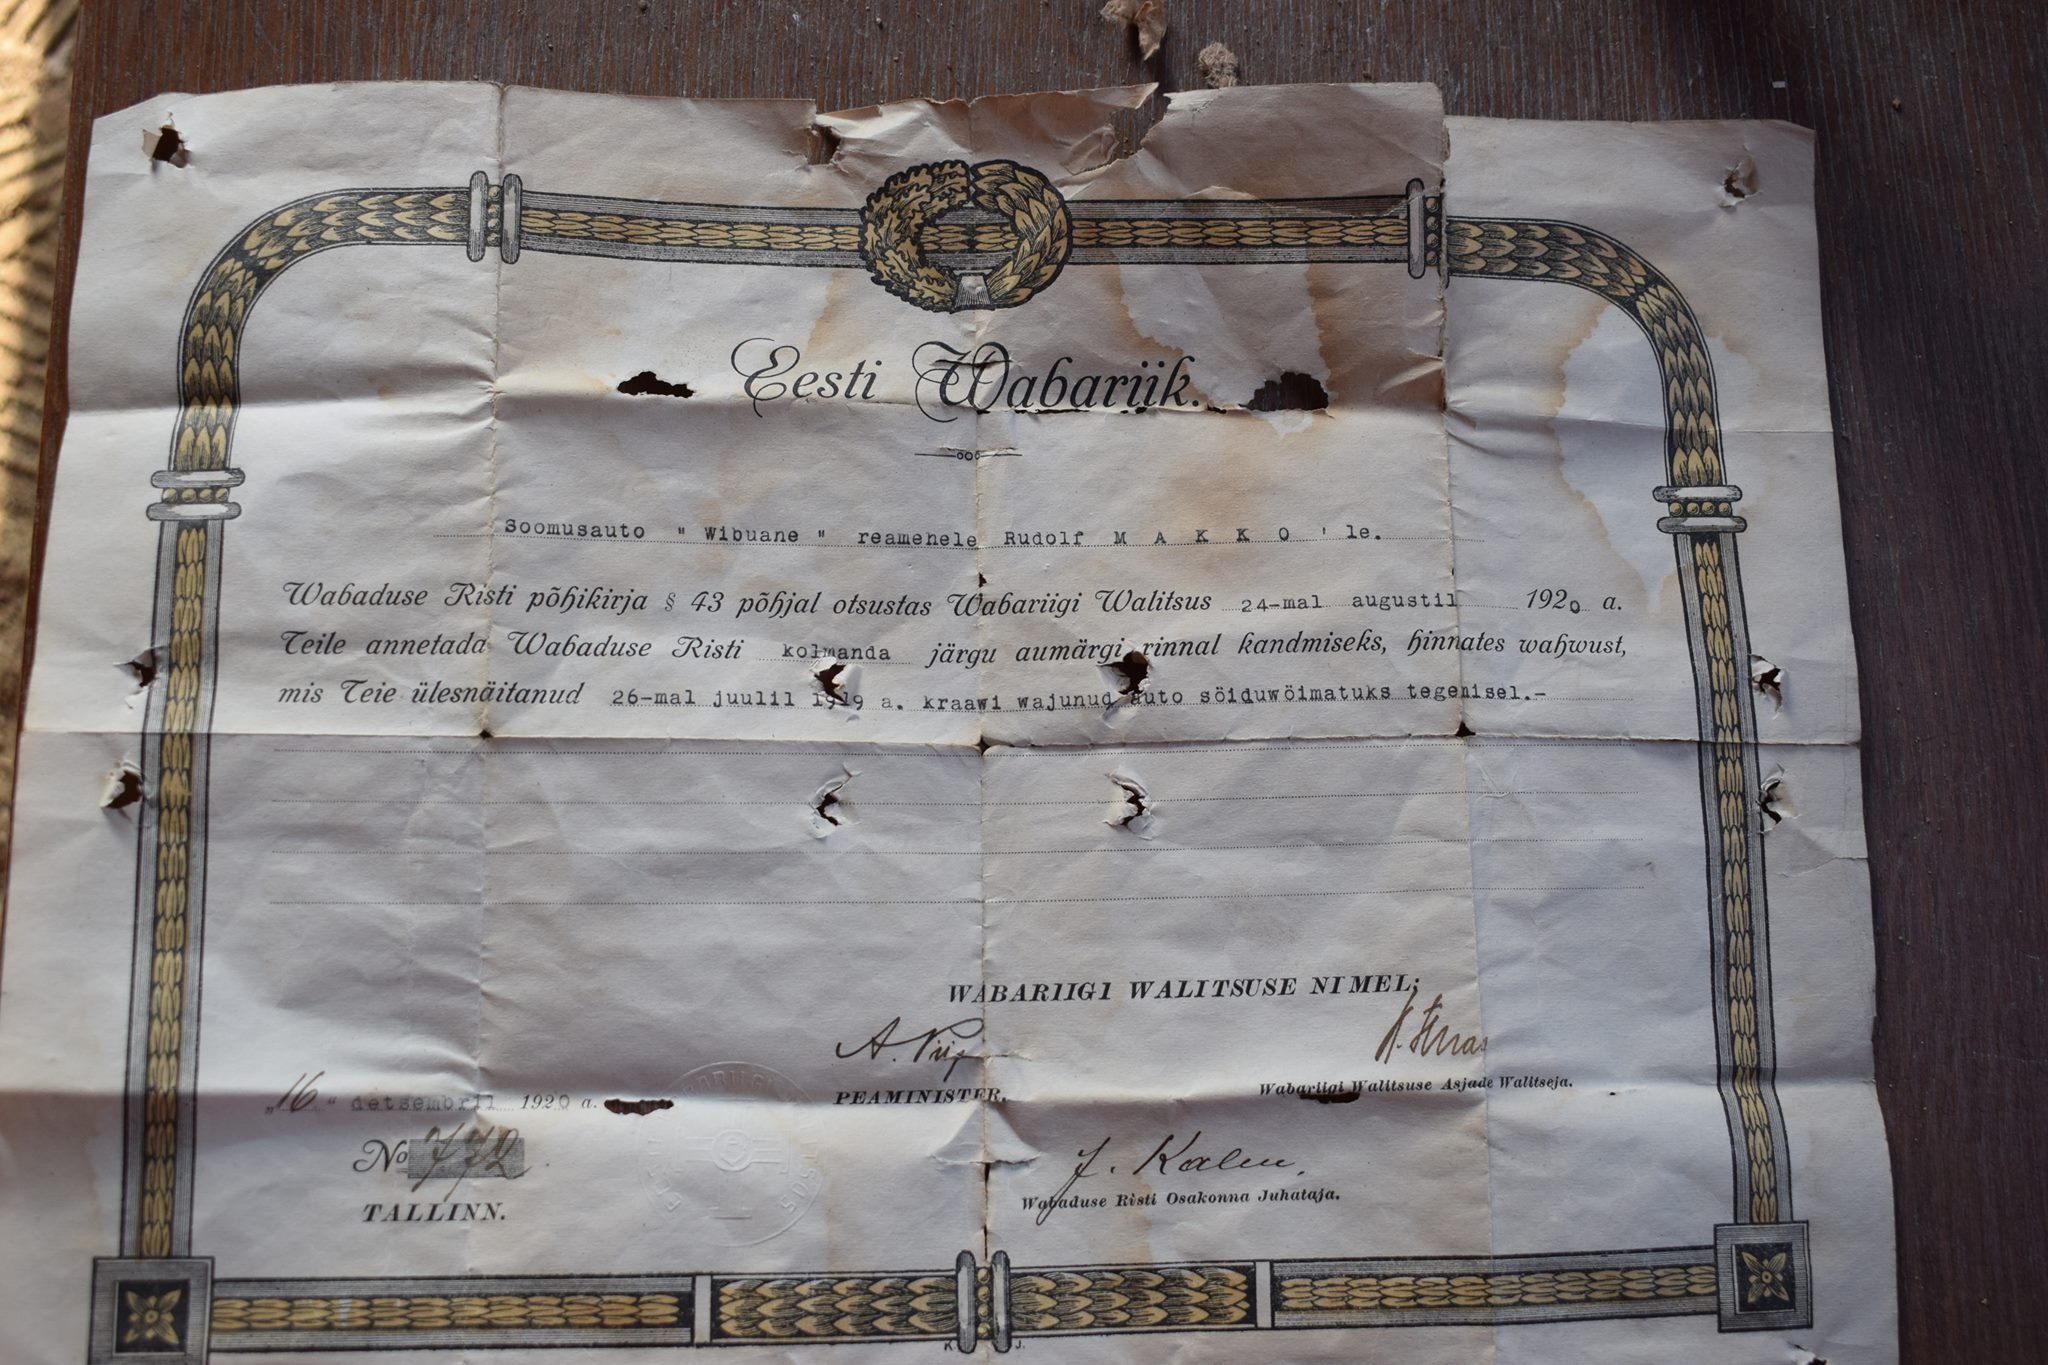 Eesti Wabariik.
Soomusauto " Wibuane " reamehele Rudolf M A K K O ' le.
Wabaduse Risti põhikirja § 43 põhjal otsustas Wabariigi Walitsus 24-mal augustil 1920 a.
Teile annetada Wabaduse Risti kolmanda järgu aumärgi rinnal kandmiseks, hinnates wahwust,
mis Teie ülesnäitanud 26-mal juulil 1919 a. kraawi wajunud auto sõiduwõimatuks tegemisel.-
WABARIIGI WALITSUSE NIMEL:
A. Piip
PEAMINISTER.
Wabariigi Walitsuse Asjade Walitseja.
„16." detsembril 1920 a.
No 772
TALLINN.
J.
Wabaduse Risti Osakonna Juhataja.
K. J.